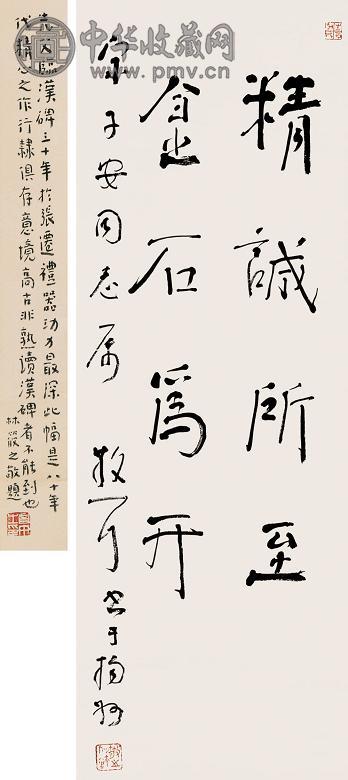 中华收藏网
www.pmv.cn
精誠所至
金石爲开
子安同志属 散耳书于扬州
先父臨漢碑三十年於張遷禮器功力最深此幅是八十年
代精心之作行隸俱存意境高古非熟讀漢碑者不能到也
林筱之敬題